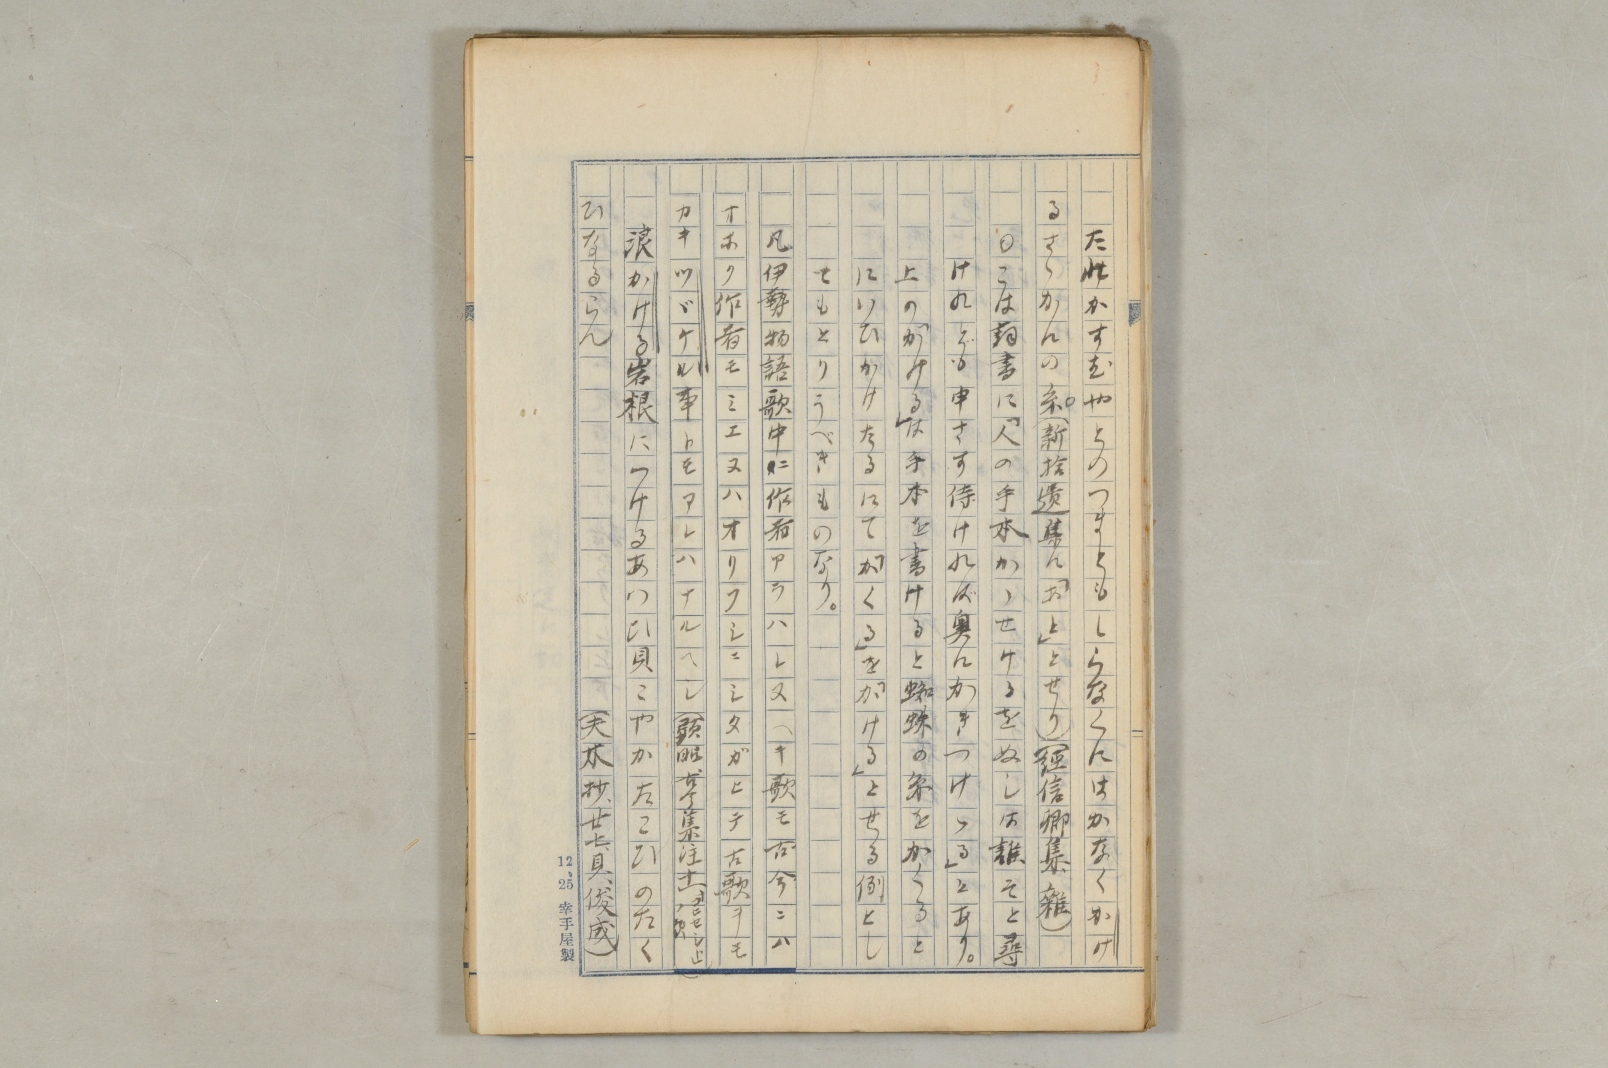 たれかすむやとのつまともしらなくにはかなくかけ
るさゝかにの糸。(新拾遺集に「お」上」とせり)(経信卿集、雑)
○こは詞書に「人の手本かゝせけるをぬしは誰そと尋
けれども申さす侍けれは奥にかきつけゝる」とあり。
上の「かける」は手本を書けると蜘蛛の糸をかくると
にいひかけたるにて「かくる」を「かける」とせる例とし
てもとりうべきものなり。
凡伊勢物語歌中ニ作者アラハレヌヘキ歌モ古今ニハ
オホク作者モミエヌハオリフシニシタガヒテ古歌ヲモ
カキツヾケル事トモアレハナルヘシ(顕昭、古今集注十一
浪かける岩根につけるあはひ貝こやかたこひのたく
ひなるらん(夫木抄、廿七、貝、俊成)
12、25 幸手屋製